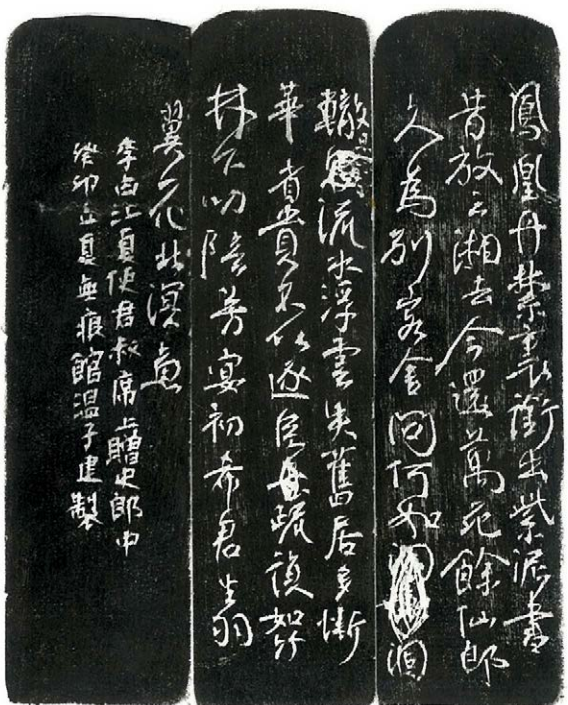 鳳凰丹禁裏銜出紫泥書
昔放三湘去今還萬死餘仙郎
久為別客舍問何如涸
轍思流水浮雲失舊居多慚
華省貴不以逐臣疏復如竹
林下叨陪芳宴初希君生羽
翼一化北溟魚
李白江夏使君叔席上贈史郎中
癸卯立夏無痕館溫子建製